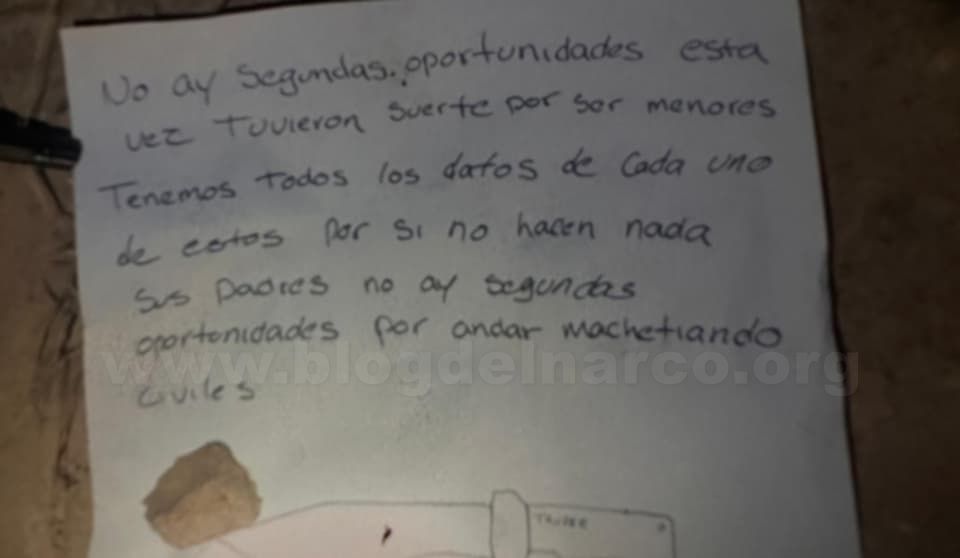 No ay segundas. oportunidades esta
vez Tuvieron suerte por ser menores
Tenemos todos los datos de cada uno
de estos por si no hacen nada
sus padres no ay segundas
oportunidades por andar machetiando
www.blogdelnarco.org
civiles